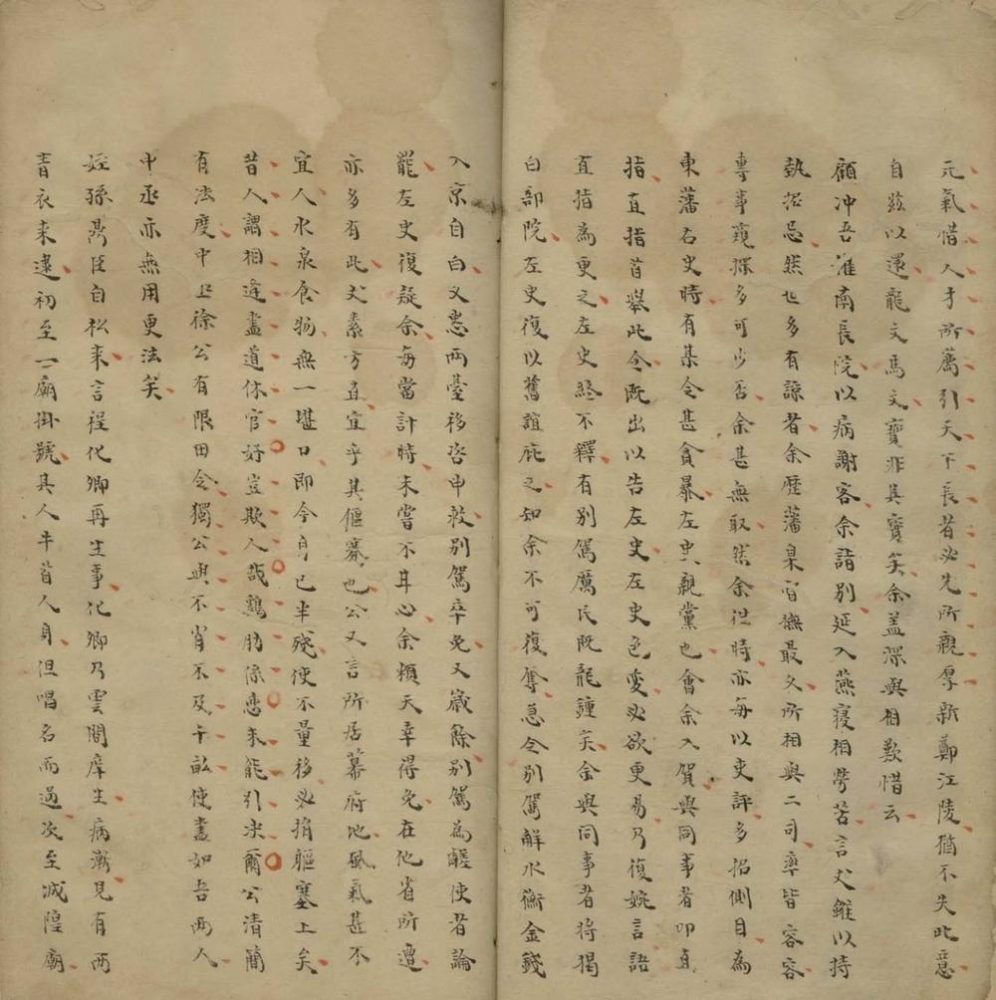 元氣惜人才所薦引天下長者必先所親厚新鄭江陵猶不失此意
自茲以還龍文馬文寶非其寶矣余蓋深與相歎惜云
顧冲吾淮南長院以病謝客余詣別延入燕寢相勞苦言丈雖以持
執招忌然也多有諒者余歷藩臬官憮最久所相與二司率皆容容
專事窺探多可少否余甚無取然余在時亦每以吏評多招側目為
東藩右史時有某令甚貪暴左史親黨也會余入賀與同事者叩直
指直指首舉此令既出以告左史左史色變必欲更易乃復婉言語
直指為更之左史終不釋有別駕厲氏既龍鍾矣余與同事者將揭
白部院左史復以舊誼庇之知余不可復奪急令別駕解水衡金錢
入京自白又慫兩臺移咨申救別駕卒免又歲餘別駕為鹺使者論
罷左史復疑余每當計時未嘗不耳心余賴天幸得免在他省所遭
亦多有此丈素方直宜乎其偃蹇也公又言所居幕府地風氣甚不
宜人水泉食物無一堪口即今身已半殘使不量移必捐軀塞上矣
昔人謂相逢盡道休官好豈欺人哉鷄肋係戀未能引决爾公清簡
有法度中丞徐公有限田令獨公與不肖不及千畝使盡如吾兩人
中丞亦無用更法矣
姪孫雋臣自松來言程化卿再生事化卿乃雲間庠生病漸見有兩
青衣来逮初至一廟掛號其人牛首人身但唱名而過次至城隍廟